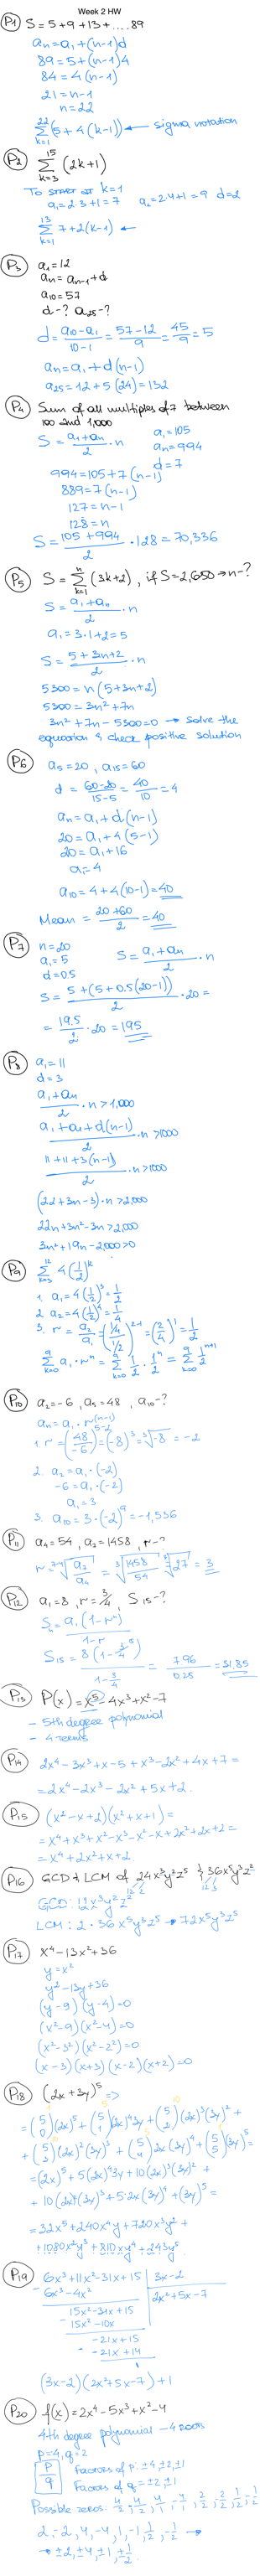 Week 2 HW
P1 S = 5 + 9 + 13 + .... 89
aₙ = a₁ + (n-1)d
89 = 5 + (n-1)4
84 = 4(n-1)
21 = n-1
n = 22
∑_{k=1}^{22} (5 + 4(k-1)) ← sigma notation
P2 ∑_{k=3}^{15} (2k+1)
To start at k=1
a₁ = 2·3+1 = 7 a₂ = 2·4+1 = 9 d=2
∑_{k=1}^{13} 7+2(k-1) ←
P3 a₁ = 12
aₙ = aₙ₋₁ + d
a₁₀ = 57
d-? a₂₅-?
d = (a₁₀ - a₁)/(10-1) = (57-12)/9 = 45/9 = 5
aₙ = a₁ + d(n-1)
a₂₅ = 12 + 5(24) = 132
P4 Sum of all multiples of 7 between
100 and 1,000
a₁ = 105
S = (a₁+aₙ)/2 · n
aₙ = 994
d = 7
994 = 105 + 7(n-1)
889 = 7(n-1)
127 = n-1
128 = n
S = (105+994)/2 · 128 = 70,336
P5 S = ∑_{k=1}^{n} (3k+2), if S=2,650 → n-?
S = (a₁+aₙ)/2 · n
a₁ = 3·1+2 = 5
S = (5+3n+2)/2 · n
5300 = n(5+3n+2)
5300 = 3n²+7n
3n²+7n-5300=0 → solve the
equation & check positive solution
P6 a₅ = 20, a₁₅ = 60
d = (60-20)/(15-5) = 40/10 = 4
aₙ = a₁ + d(n-1)
20 = a₁ + 4(5-1)
20 = a₁ + 16
a₁ = 4
a₁₀ = 4+4(10-1) = 40
Mean = (20+60)/2 = 40
P7 n = 20
a₁ = 5 S = (a₁+aₙ)/2 · n
d = 0.5
S = (5+(5+0.5(20-1)))/2 · 20 =
= 19.5/2 · 20 = 195
P8 a₁ = 11
d = 3
(a₁+aₙ)/2 · n > 1,000
(a₁+a₁+d(n-1))/2 · n > 1000
(11+11+3(n-1))/2 · n > 1000
(22+3n-3)·n > 2,000
22n+3n²-3n > 2,000
3n²+19n-2,000 > 0
P9 ∑_{k=3}^{12} 4(1/2)^k
1. a₁ = 4(1/2)³ = 1/2
2. a₂ = 4(1/2)⁴ = 1/4
3. r = a₂/a₁ = ((1/4)/(1/2))^{2-1} = (2/4)¹ = 1/2
∑_{k=0}^{9} a₁·rⁿ = ∑_{k=0}^{9} 1/2 · 1/2ⁿ = ∑_{k=0}^{9} 1/2^{n+1}
P10 a₂ = -6, a₅ = 48, a₁₀-?
aₙ = a₁·r^{(n-1)}
1. r = (48/-6)^{5-2} = (-8)³ = ∛-8 = -2
2. a₂ = a₁·(-2)
-6 = a₁·(-2)
a₁ = 3
3. a₁₀ = 3·(-2)⁹ = -1,536
P11 a₄ = 54, a₇ = 1458, r-?
r = ⁷⁻⁴√(a₇/a₄) = ∛(1458/54) = ∛27 = 3
P12 a₁ = 8, r = 3/4, S₁₅-?
Sₙ = a₁(1-rⁿ)/(1-r)
S₁₅ = 8(1-3/4¹⁵)/(1-3/4) = 7.96/0.25 = 31.85
P13 P(x) = x⁵-4x³+x²-7
- 5th degree polynomial
- 4 terms
P14 2x⁴-3x³+x-5+x³-2x²+4x+7 =
= 2x⁴-2x³-2x²+5x+2.
P15 (x²-x+2)(x²+x+1) =
= x⁴+x³+x²-x³-x²-x+2x²+2x+2 =
= x⁴+2x²+x+2
P16 GCD & LCM of 24x³y²z⁵ & 36x⁵y³z²
GCD: 12x³y²z²
LCM: 2·36x⁵y³z⁵ → 72x⁵y³z⁵
P17 x⁴-13x²+36
y = x²
y²-13y+36
(y-9)(y-4)=0
(x²-9)(x²-4)=0
(x²-3²)(x²-2²)=0
(x-3)(x+3)(x-2)(x+2)=0
P18 (2x+3y)⁵ =>
= (5 0)(2x)⁵ + (5 1)(2x)⁴3y + (5 2)(2x)³(3y)² +
+ (5 3)(2x)²(3y)³ + (5 4)2x(3y)⁴ + (5 5)(3y)⁵ =
= (2x)⁵ + 5(2x)⁴3y + 10(2x)³(3y)² +
+ 10(2x)²(3y)³ + 5·2x(3y)⁴ + (3y)⁵ =
= 32x⁵+240x⁴y+720x³y²+
+1080x²y³+810xy⁴+243y⁵
P19 6x³+11x²-31x+15 | 3x-2
- 6x³-4x² 2x²+5x-7
15x²-31x+15
- 15x²-10x
-21x+15
- -21x+14
1
(3x-2)(2x²+5x-7)+1
P20 f(x) = 2x⁴-5x³+x²-4
4th degree polynomial - 4 roots
p=4, q=2
p/q Factors of p: ±4, ±2, ±1
Factors of q: = ±2, ±1
Possible zeros: 4/2, -4/2, 4/1, -4/1, 2/2, -2/2, 1/2, -1/2
2, -2, 4, -4, 1, -1, 1/2, -1/2 →
→ ±2, ±4, ±1, ±1/2.